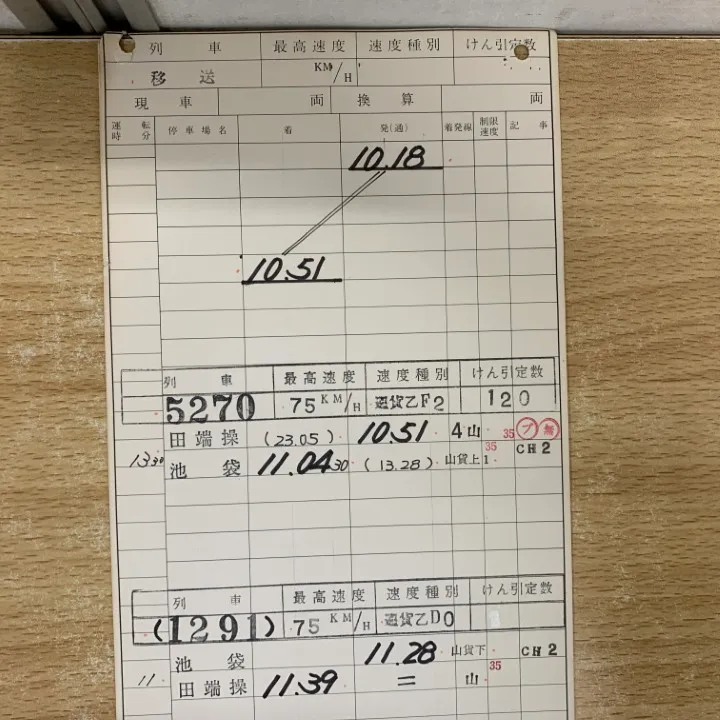 列車 最高速度 速度種別 けん引定数
移送 KM/H
現車 両 換算 両
運転時分 停車場名 着 発(通) 着発線 制限速度 記事
10.18
10.51
列車 最高速度 速度種別 けん引定数
5270 75KM/H 通貨乙F2 120
田端操 (23.05) 10.51 4山 35 プ 無
1330 池袋 11.0430 (13.28) 山貨上1 35 CH2
列車 最高速度 速度種別 けん引定数
(1291) 75KM/H 通貨乙D0
池袋 11.28 山貨下 CH2
11 田端操 11.39 = 山 35